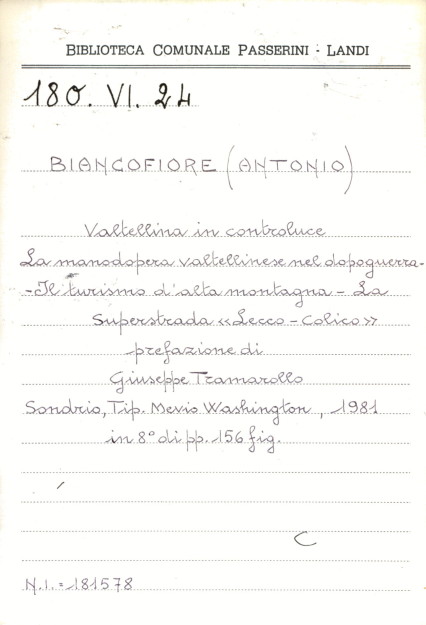 BIBLIOTECA COMUNALE PASSERINI - LANDI
180. VI. 24
BIANCOFIORE (ANTONIO)
Valtellina in controluce
La manodopera valtellinese nel dopoguerra-
-Il turismo d'alta montagna - La
Superstrada «Lecco - Colico»
prefazione di
Giuseppe Tramarollo
Sondrio, Tip. Mevio Washington, 1981
in 8° di pp. 156 fig.
C
N.I. = 181578